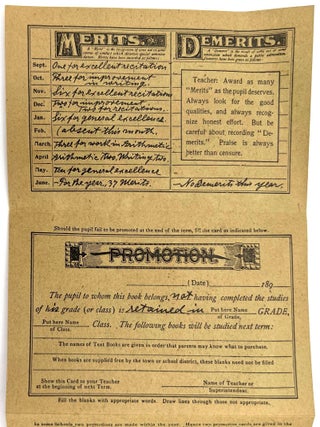 MERITS.
A "Merit" is the recognition of some act or good course of conduct which deserves special mention.
Sept. One for excellent recitation
Oct. Three for improvement in writing.
Nov. Six for excellent recitations
Dec. Two for improvement Two for recitations.
Jan. Six for general excellence.
Feb. (absent this month.
March Three for work in Arithmetic
April Arithmetic two, Writing two.
May Ten for general excellence
June. For the year, 37 Merits.
DEMERITS.
Teacher: Award as many
"Merits" as the pupil deserves.
Always look for the good
qualities, and always recog-
nize honest effort. But be
careful about recording "De-
merits." Praise is always
better than censure.
No Demerits this year.
Should the pupil fail to be promoted at the end of the term, fill the card as indicated below.
PROMOTION.
(Date) 189
The pupil to whom this book belongs, not having completed the studies
of his grade (or class) is retained in Put here Name of Grade. GRADE,
Put here Name of Class. Class. The following books will be studied next term:
The names of Text Books are given in order that parents may know what to purchase.
When books are supplied free by the town or school district, these blanks need not be filled
Show this Card to your Teacher at the beginning of next Term.
Name of Teacher or Superintendent.
Fill the blanks with appropriate words. Draw lines through those not appropriate.
In some Schools two promotions are made within the year. Hence two promotion cards are given in the